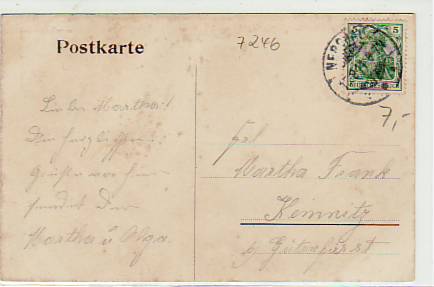 Postkarte
7246
5
7,-
Liebe Martha!
Die herzlichsten
Grüße von hier
sendet Dir
Martha u Olga.
Frl
Martha Frank
Kemnitz
b/